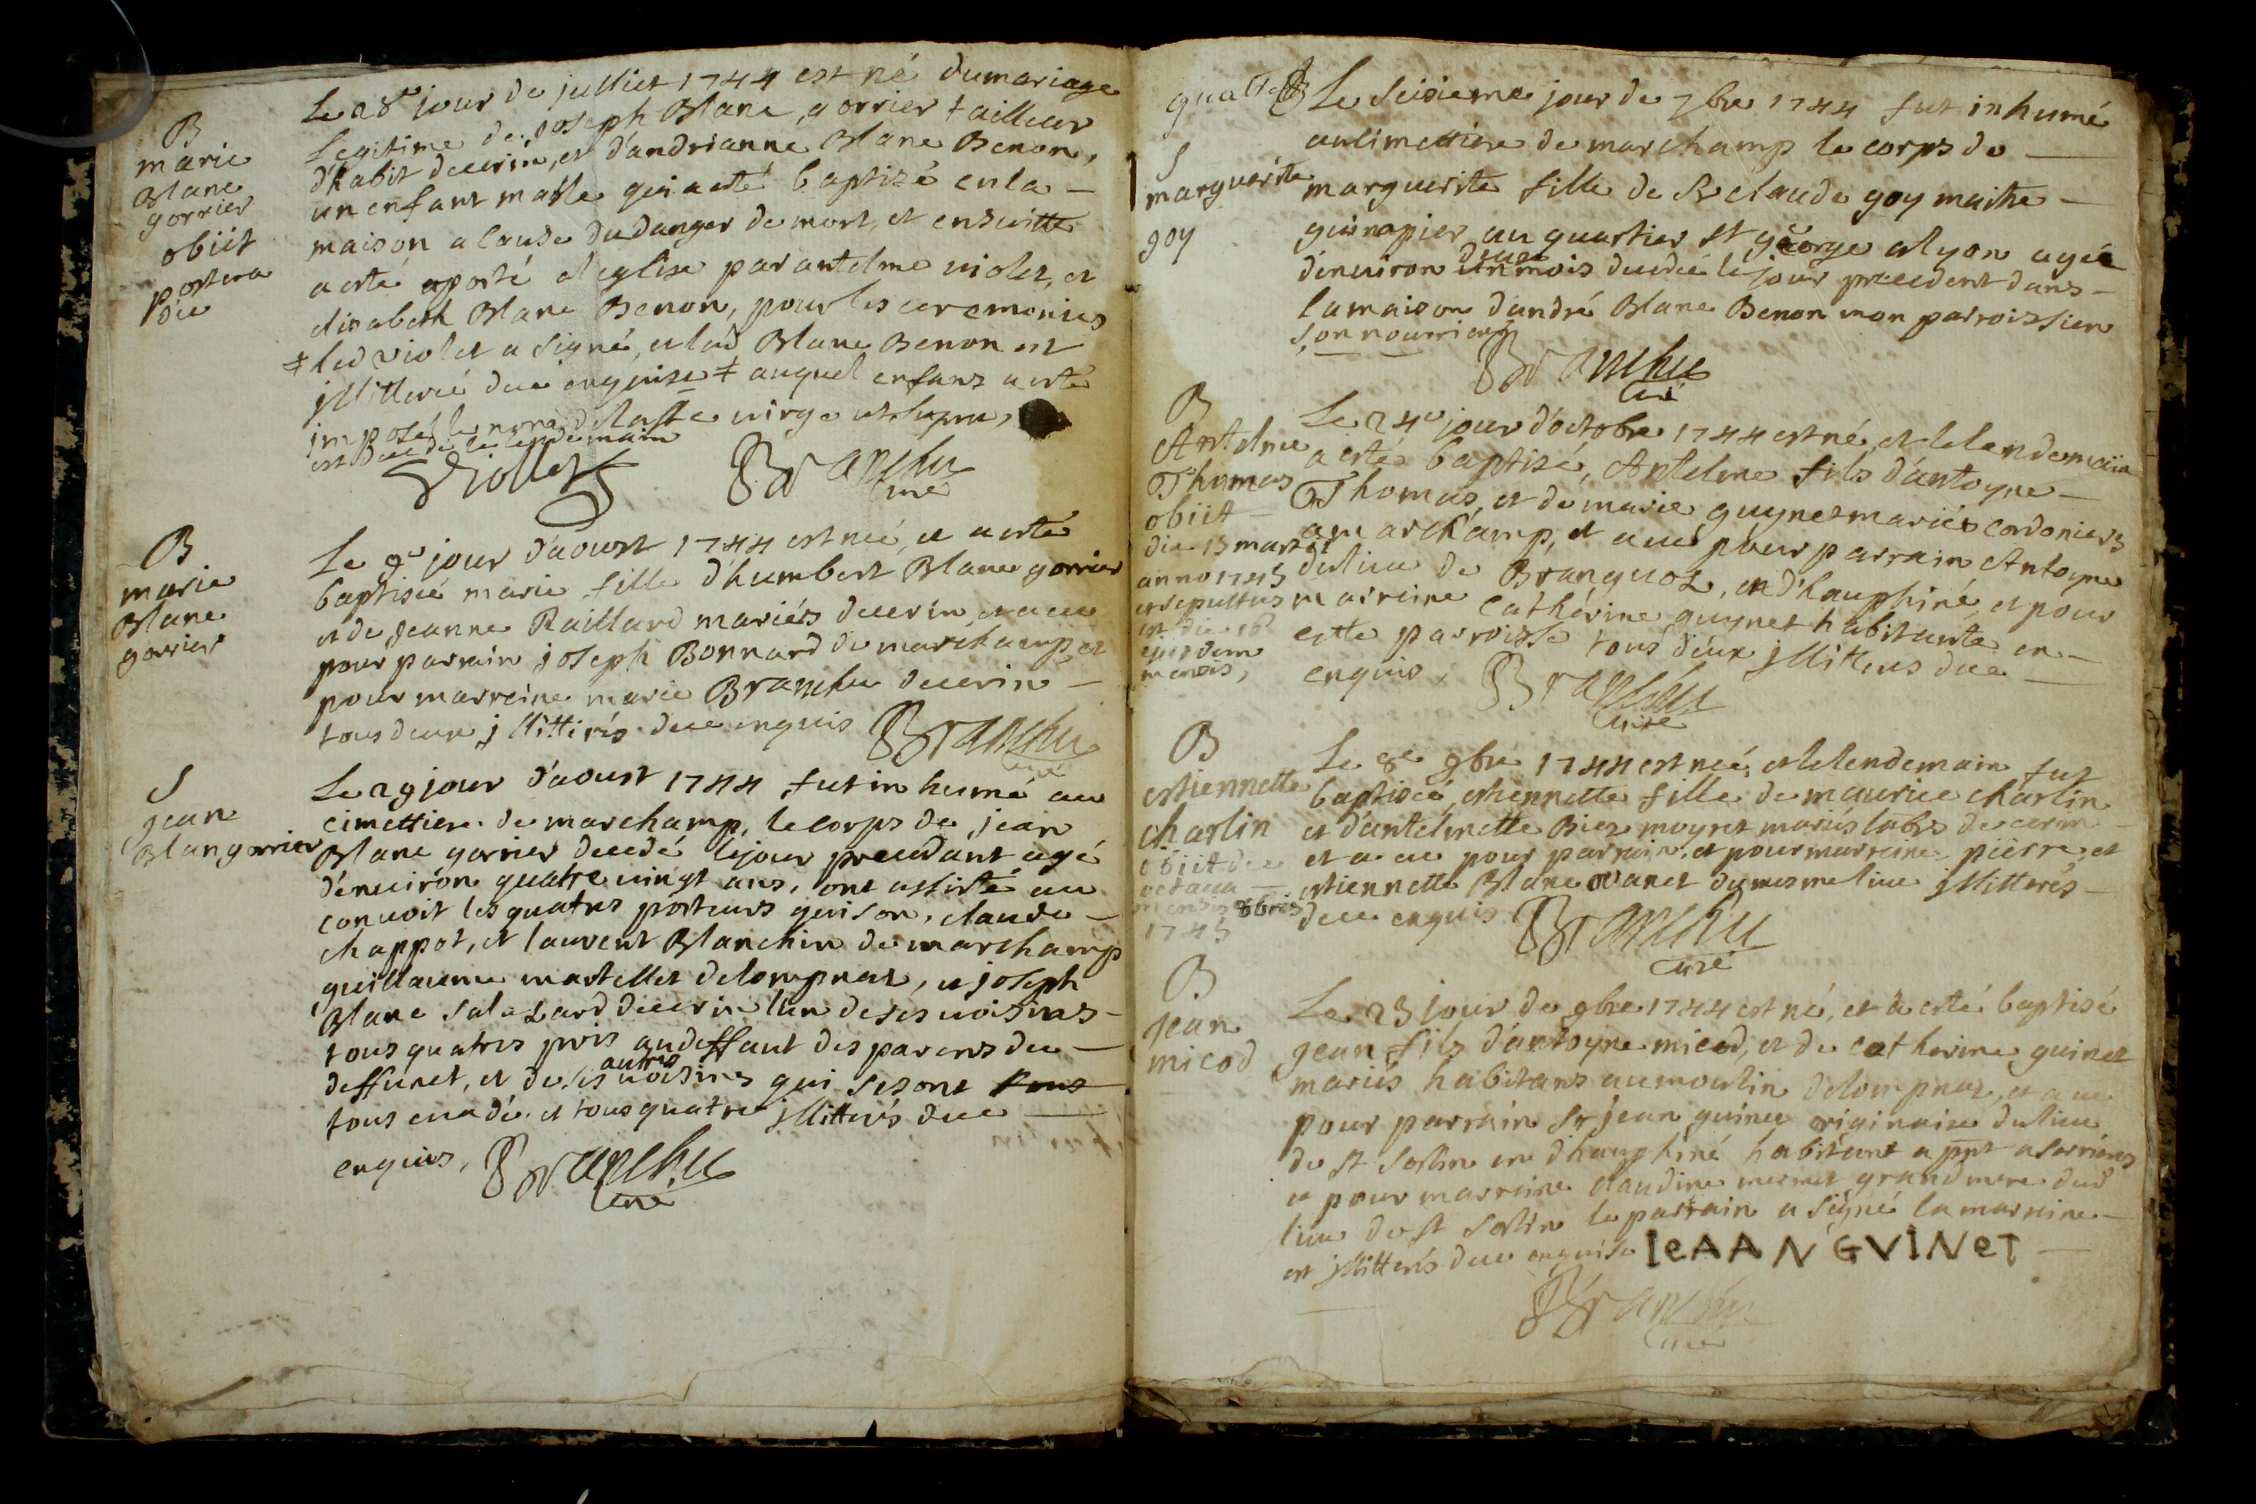 B
marie
Blanc
gorrier
obiit
postera
die
Le 28e jour de julliet 1744 est né du mariage
Legitime de joseph Blanc, gorrier tailleur
d'habit decerin, et d'andrianne Blanc Benon,
un enfant masle qui a esté baptizé en la –
maison a cause du danger de mort, et ensuitte
a esté aporté a l'eglise par antelme violet, et
elisabeth Blanc Benon, pour les ceremonies
led violet a signé, et lad Blanc Benon est
jllitterée de ce enquise ‡ auquel enfans a esté
imposé le nom de
est decede le lendemain
Viollet Branchu
curé
B
marie
Blanc
gorrier
Le 9e jour d'aoust 1744 est neé, et a esté
baptisée marie fille d'humbert Blanc gorrier
et de jeanne Raillard mariés decerin et a eu
pour parrain joseph Bonnard de marchamp, et
pour marreine marie Branchu decerin –
tous deux jllittirés de ce enquis Branchu
curé
S
jean
Blan gorrier
Le 29 jour d'aoust 1744 fut inhumé au
cimettiere de marchamp, le corps de jean
Blanc gorrier decedé le jour precedant agé
d'enuirón quatre uingt ans, ont assisté au
conuoit les quatres porteurs qui son, claude –
chappot, et laurent Blanchin de marchamp
guillaume martellet delompnaz, et joseph
Blanc salazard decerin l'un de ses uoisins –
tous quatres pris au deffaut des parens du –
deffunct, et de ses autres uoisins qui se sont tous
tous euadé, et tous quatre jllittirés de ce
enquis, Branchu
curé
S
marguerite
goy
Le seisieme jour de 7bre 1744 fut inhumé
au cimettiere de marchamp le corps de
marguerite fille de Sr claude goy maitre –
guinapier au quartier st george a lyon agée
d'enuiron deux mois decedée le jour precedent dans –
la maison d'andré Blanc Benon mon parroissien
son nourricier
Branchu
curé
B
Antelme
Thomas
obiit –
die 15 martii
anno 1745
et sepultus
est die 16
ejusdem
mensis,
Le 24e jour d'octobre 1744 est né, et le lendemain
a esté baptisé, Antelme fils d'antoyne –
Thomas, et de marie guynet mariés cordoniers
a marchamp, et a eu pour parrain Antoyne
du lieu de Branguoz, en d'hauphiné, et pour
marreine cathérine guynet habitante en –
cette parroisse tous deux jllitterés de ce
enquis, Branchu
curé
B
estiennette
charlin
obiit die
octaua
mensis 8bris
1745
Le 8e 9bre 1744 est neé, et le lendemain fut
baptisée, estiennette fille de maurice charlin
et d'antelmette Biez moyret mariés labrs de cerin –
et a eu pour parrain, et pour marreine pierre, et
estiennette Blanc ouaret du mesme lieu jllitterés –
de ce enquis Branchu
curé
B
jean
micod
Le 23 jour de 9bre 1744 est né, et a esté baptisé
jean fils d'antoyne micod, et de catherine guinet
mariés habitans au moulin delompnaz, et a eu
pour parrain Sr jean guinet originaire du lieu
de st sorlin en dhauphiné habitant a pnt a serriéres
et pour marreine claudine mermet grand mere dud
lieu de st sorlin le parrain a signé la marreine –
est jllitterés de ce enquise IeAAN GVINeT
Branchu
curé